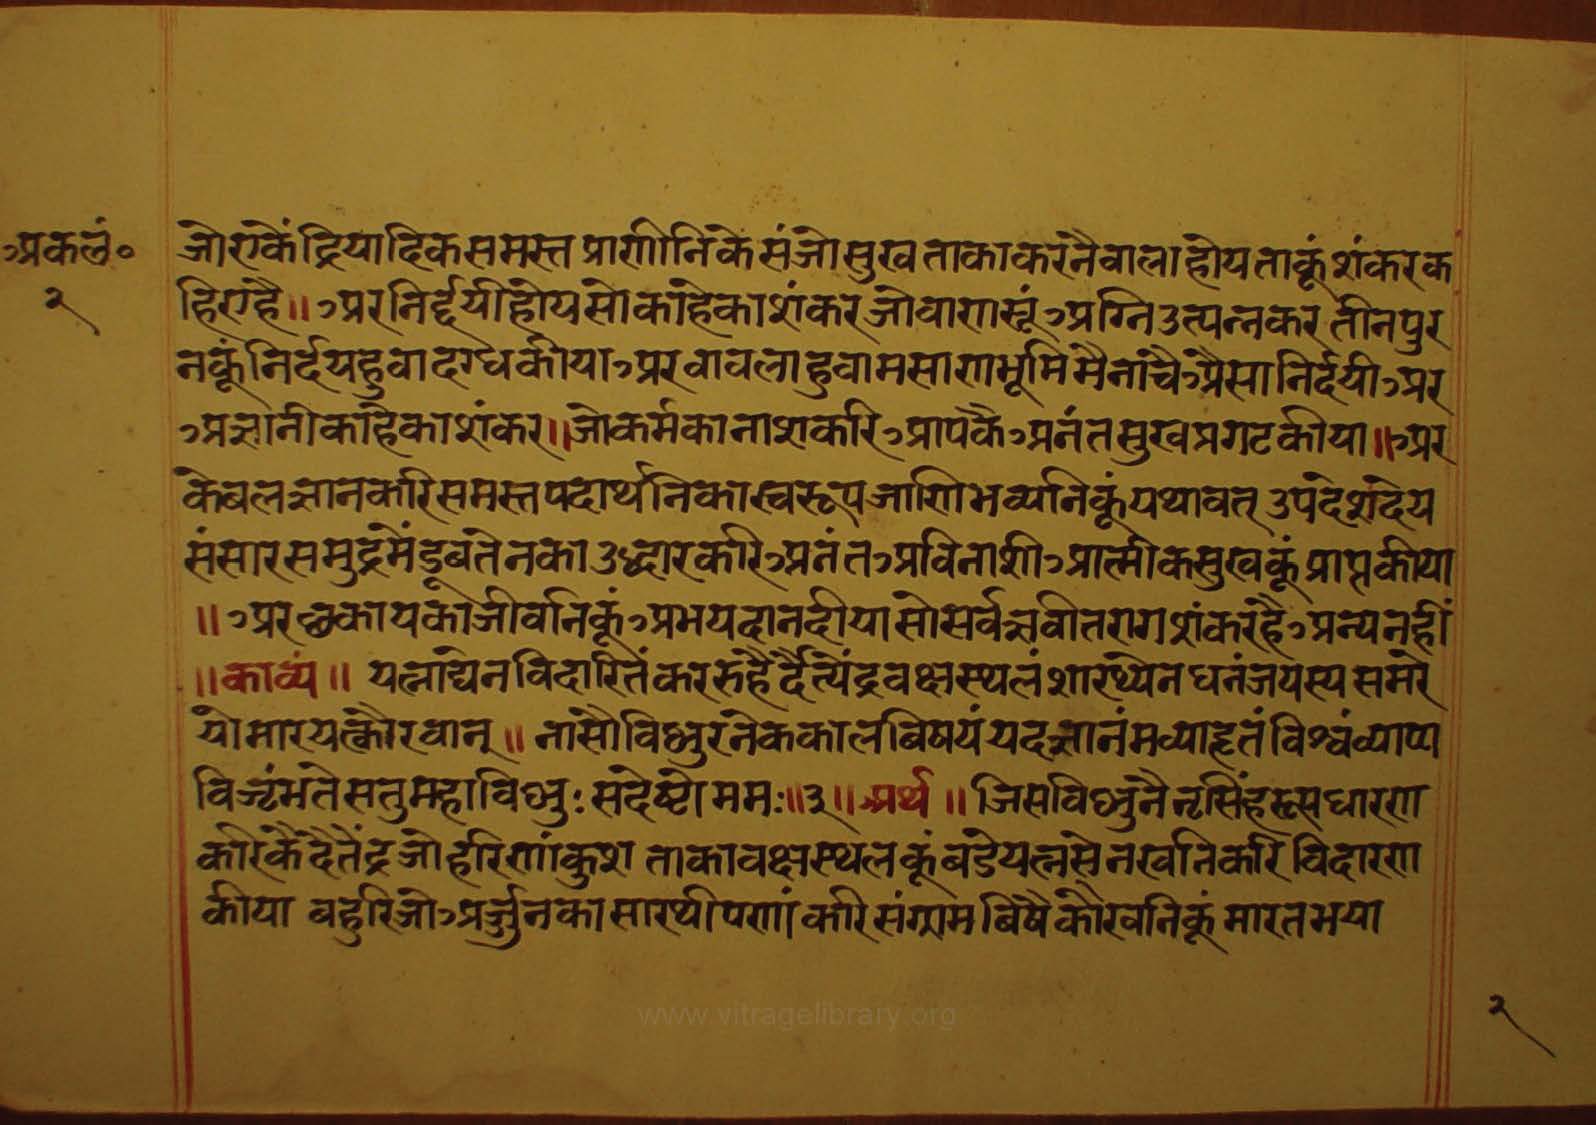 अकलं०
२
जो एकेंद्रियादिक समस्त प्राणीनिके संजो सुख ताका करनैवाला होय ताकूं शंकर क
हिए है ॥ अर निर्द्दयी होय सो काहेका शंकर जो वाणसूं अग्नि उत्पन्न कर तीन पुर
नकूं निर्दय हुवा दग्ध कीया अर वावला हुवा मसाण भूमि मै नांचै अैसा निर्दयी अर
अज्ञानी काहेका शंकर ॥ जो कर्मका नाश करि आपकै अनंत सुख प्रगट कीया ॥ अर
केबलज्ञान करि समस्त पदार्थनिका स्वरूप जाणि भव्यनिकूं यथावत् उपदेश देय
संसार समुद्र मैं डूबते नका उद्धार करि अनंत अविनाशी आत्मीक सुखकूं प्राप्त कीया
॥ अर छकायको जीवनिकूं अभयदान दीया सो सर्वज्ञ वीतराग शंकर है अन्य नहीं
॥ काव्यं ॥ यत्नाद्येन विदारितं कररुहैर्दैत्येंद्रवक्षस्थलं शारथ्येन धनंजयस्य समरे
यो मारयत्कौरवान् ॥ नासौ विष्णुरनेककालबिषयं यदज्ञानंमव्याहृतं विश्वं व्याप्य
विजृंभते स तु महाविष्णुः सदेष्टो ममः ॥३॥ अर्थ ॥ जिस विष्णुनै नृसिंह रूप धारण
करिकै दैतेंद्र जो हरिणांकुश ताका वक्षस्थलकूं बडे यत्नसे नखनिकरि विदारण
कीया बहुरि जो अर्ज्जुनका सारथीपणां करि संग्राम बिषै कौरवनिकूं मारत भया
२
www.vitragelibrary.org